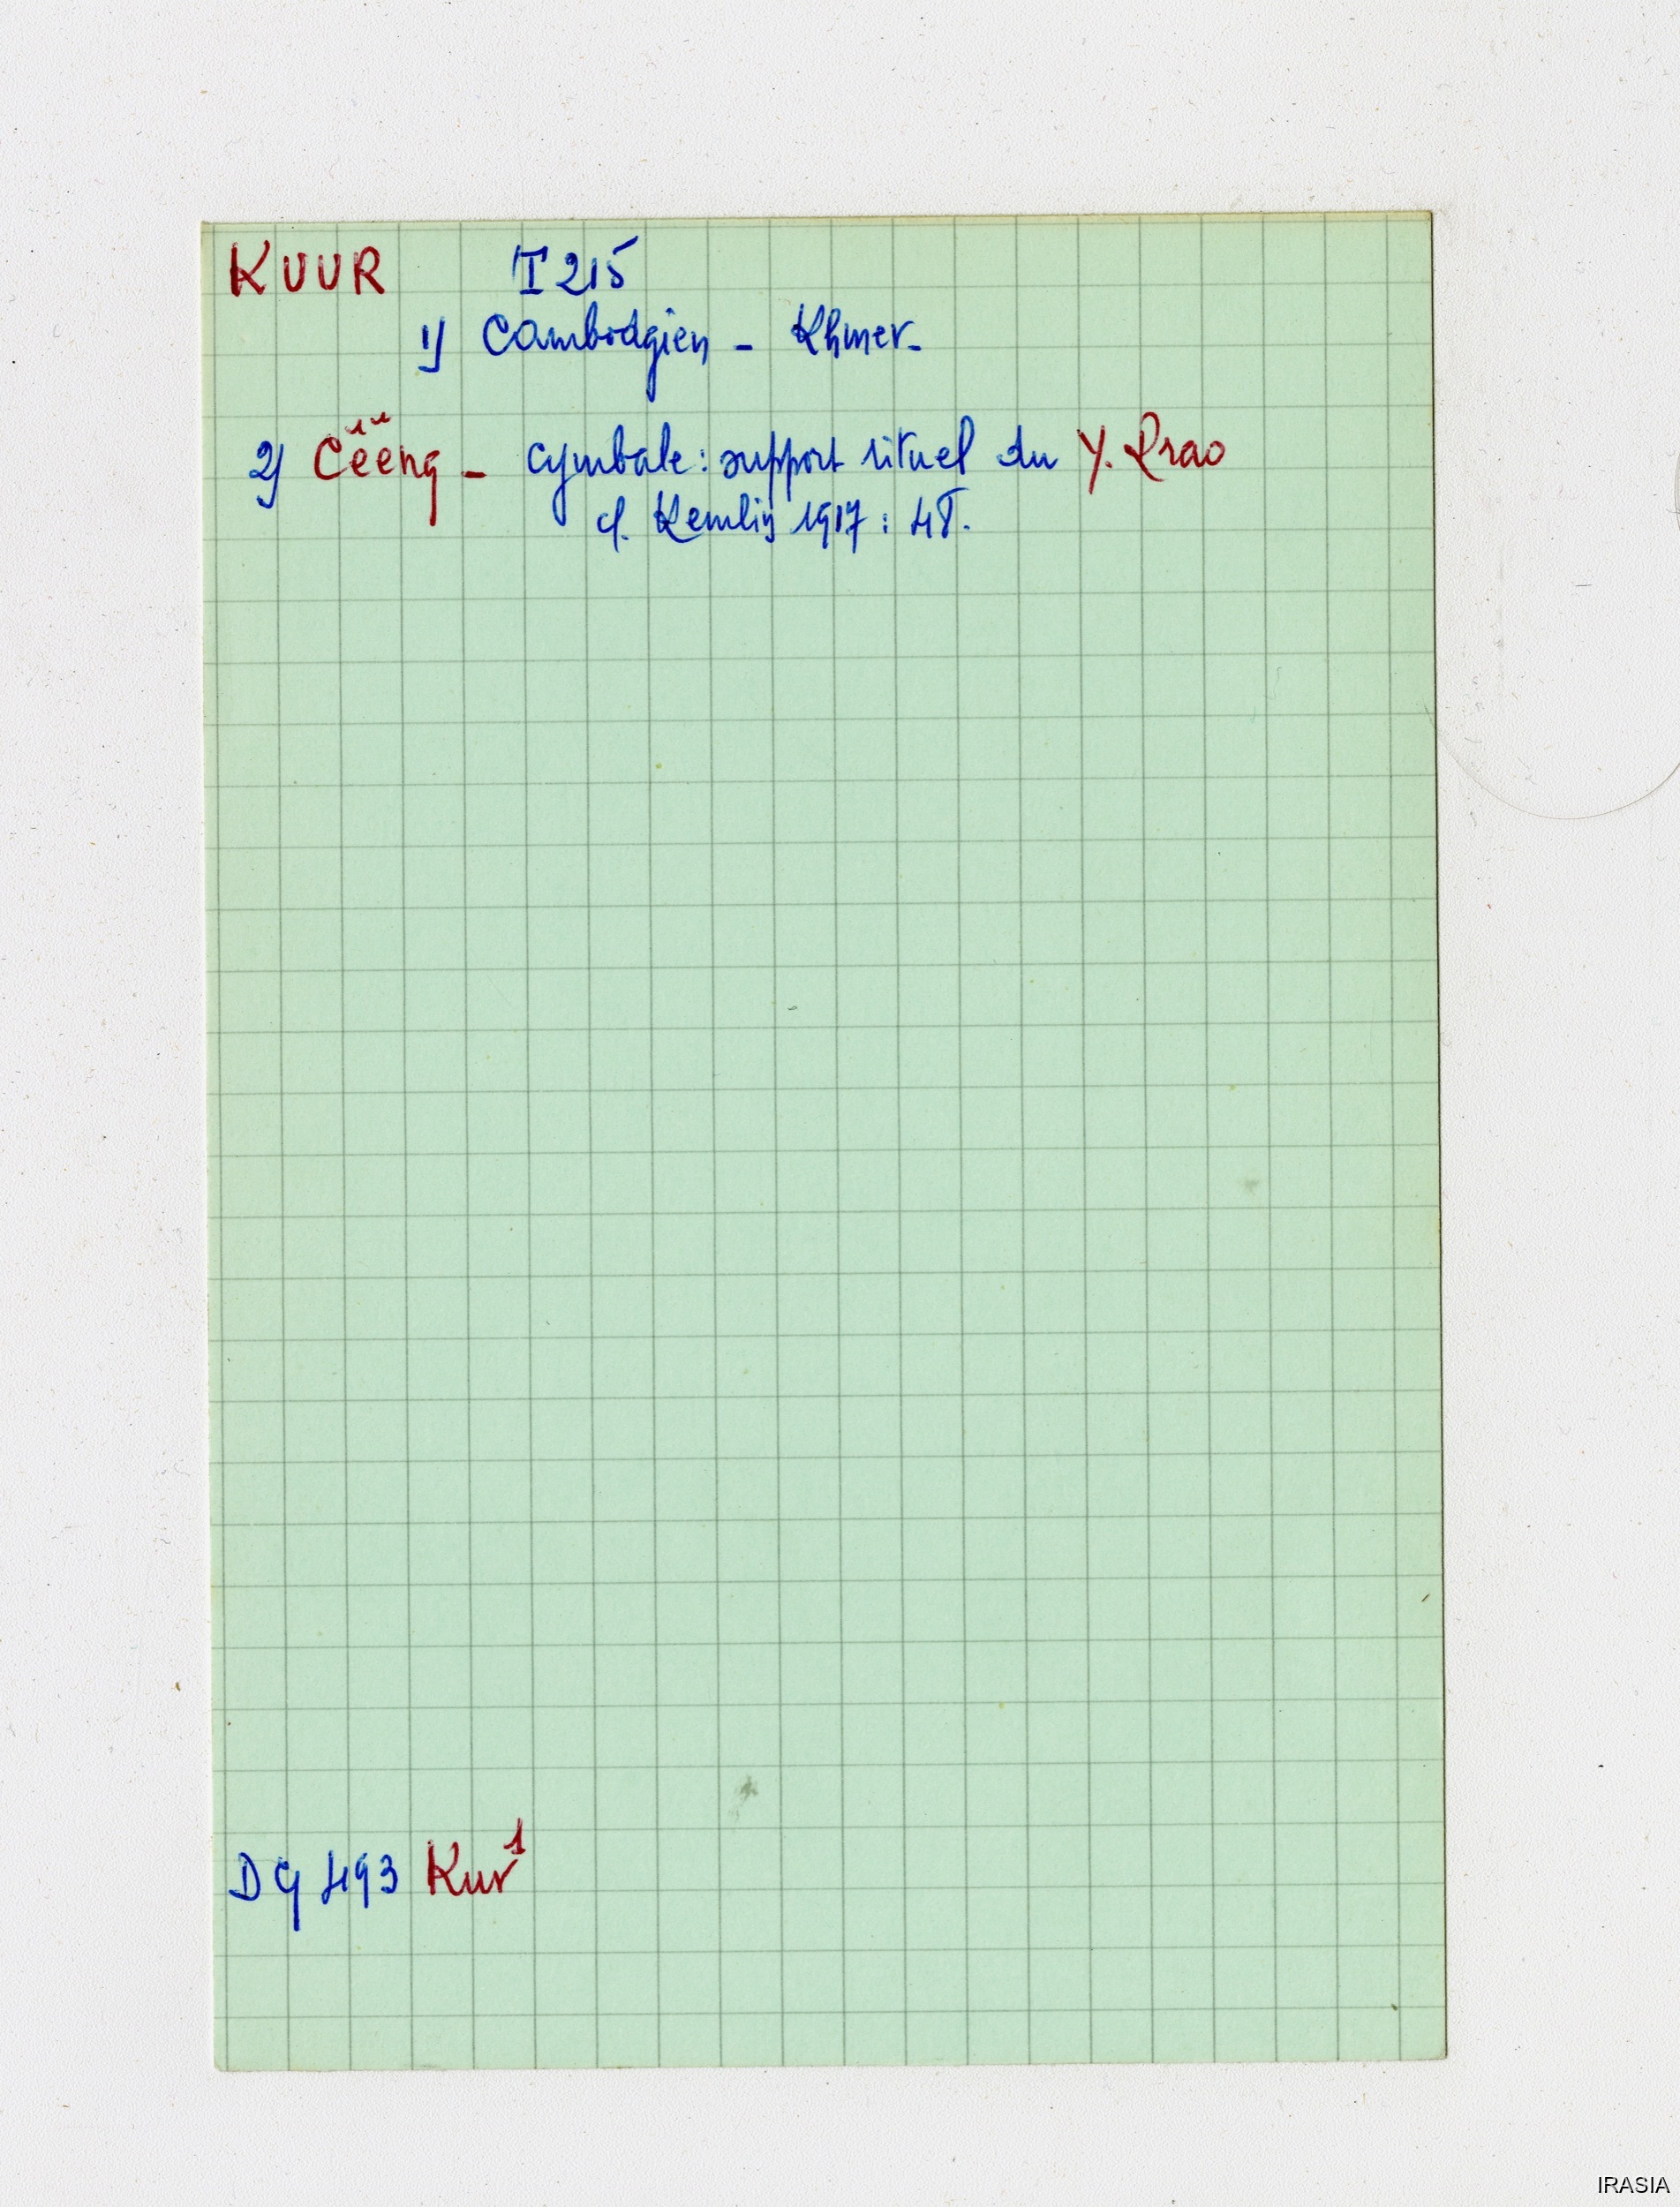 KUUR I 215
1) Cambodgien - Khmer-
2) Cĕĕng - cymbale : support rituel du Y. Prao
cf. Kemlin 1917 : 48.
DG 493 Kur¹
IRASIA